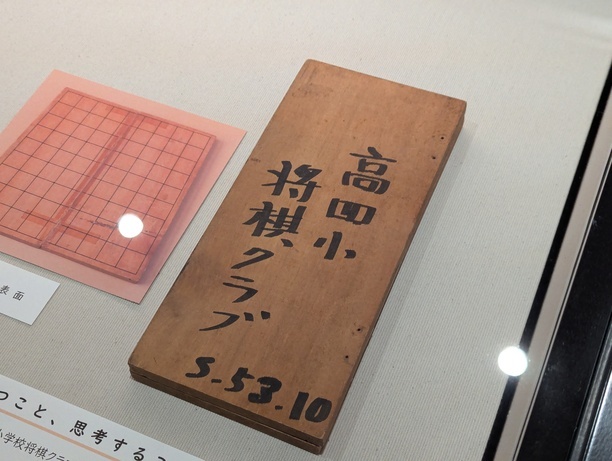 高田小
将棋クラブ
S.53.10
表面
つこと、思考する
小学校将棋クラ